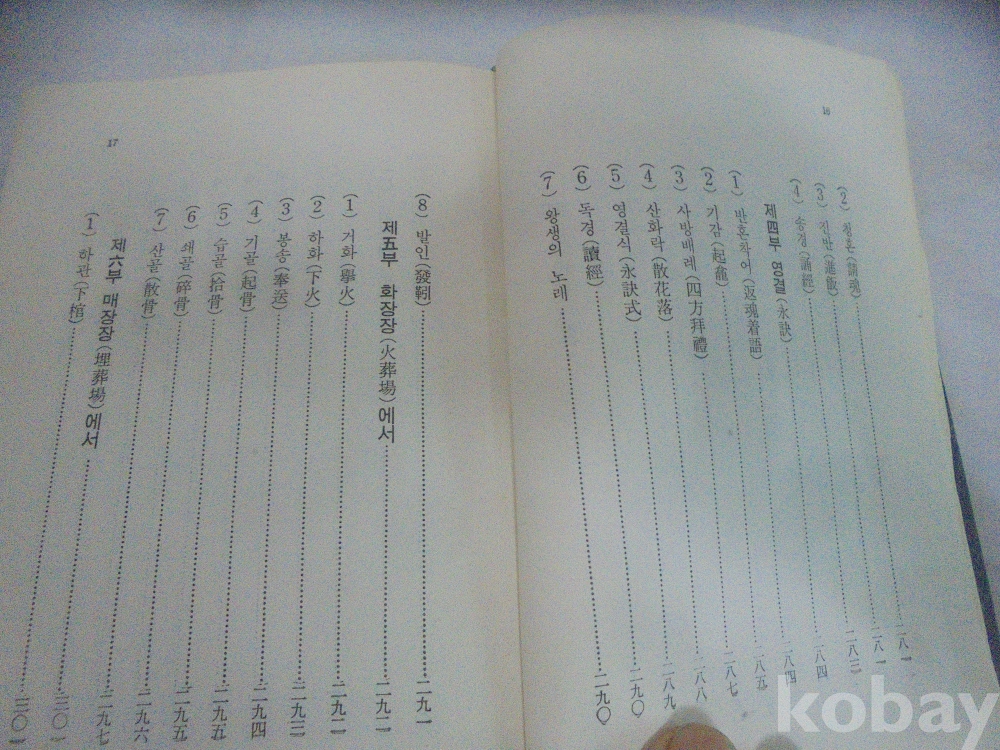 16
(2) 청혼(請魂) 二八一
(3) 진반(進飯) 二八一
(4) 송경(誦經) 二八三
제四부 영결(永訣) 二八四
(1) 반혼착어(返魂着語) 二八四
(2) 기감(起龕) 二八五
(3) 사방배례(四方拜禮) 二八七
(4) 산화락(散花落) 二八八
(5) 영결식(永訣式) 二八九
(6) 독경(讀經) 二九〇
(7) 왕생의 노래 二九〇
17
(8) 발인(發靷) 二九一
제五부 화장장(火葬場)에서 二九二
(1) 거화(擧火) 二九二
(2) 하화(下火) 二九三
(3) 봉송(奉送) 二九四
(4) 기골(起骨) 二九五
(5) 습골(拾骨) 二九五
(6) 쇄골(碎骨) 二九六
(7) 산골(散骨) 二九七
제六부 매장장(埋葬場)에서 三〇一
(1) 하관(下棺) 三〇一
kobay